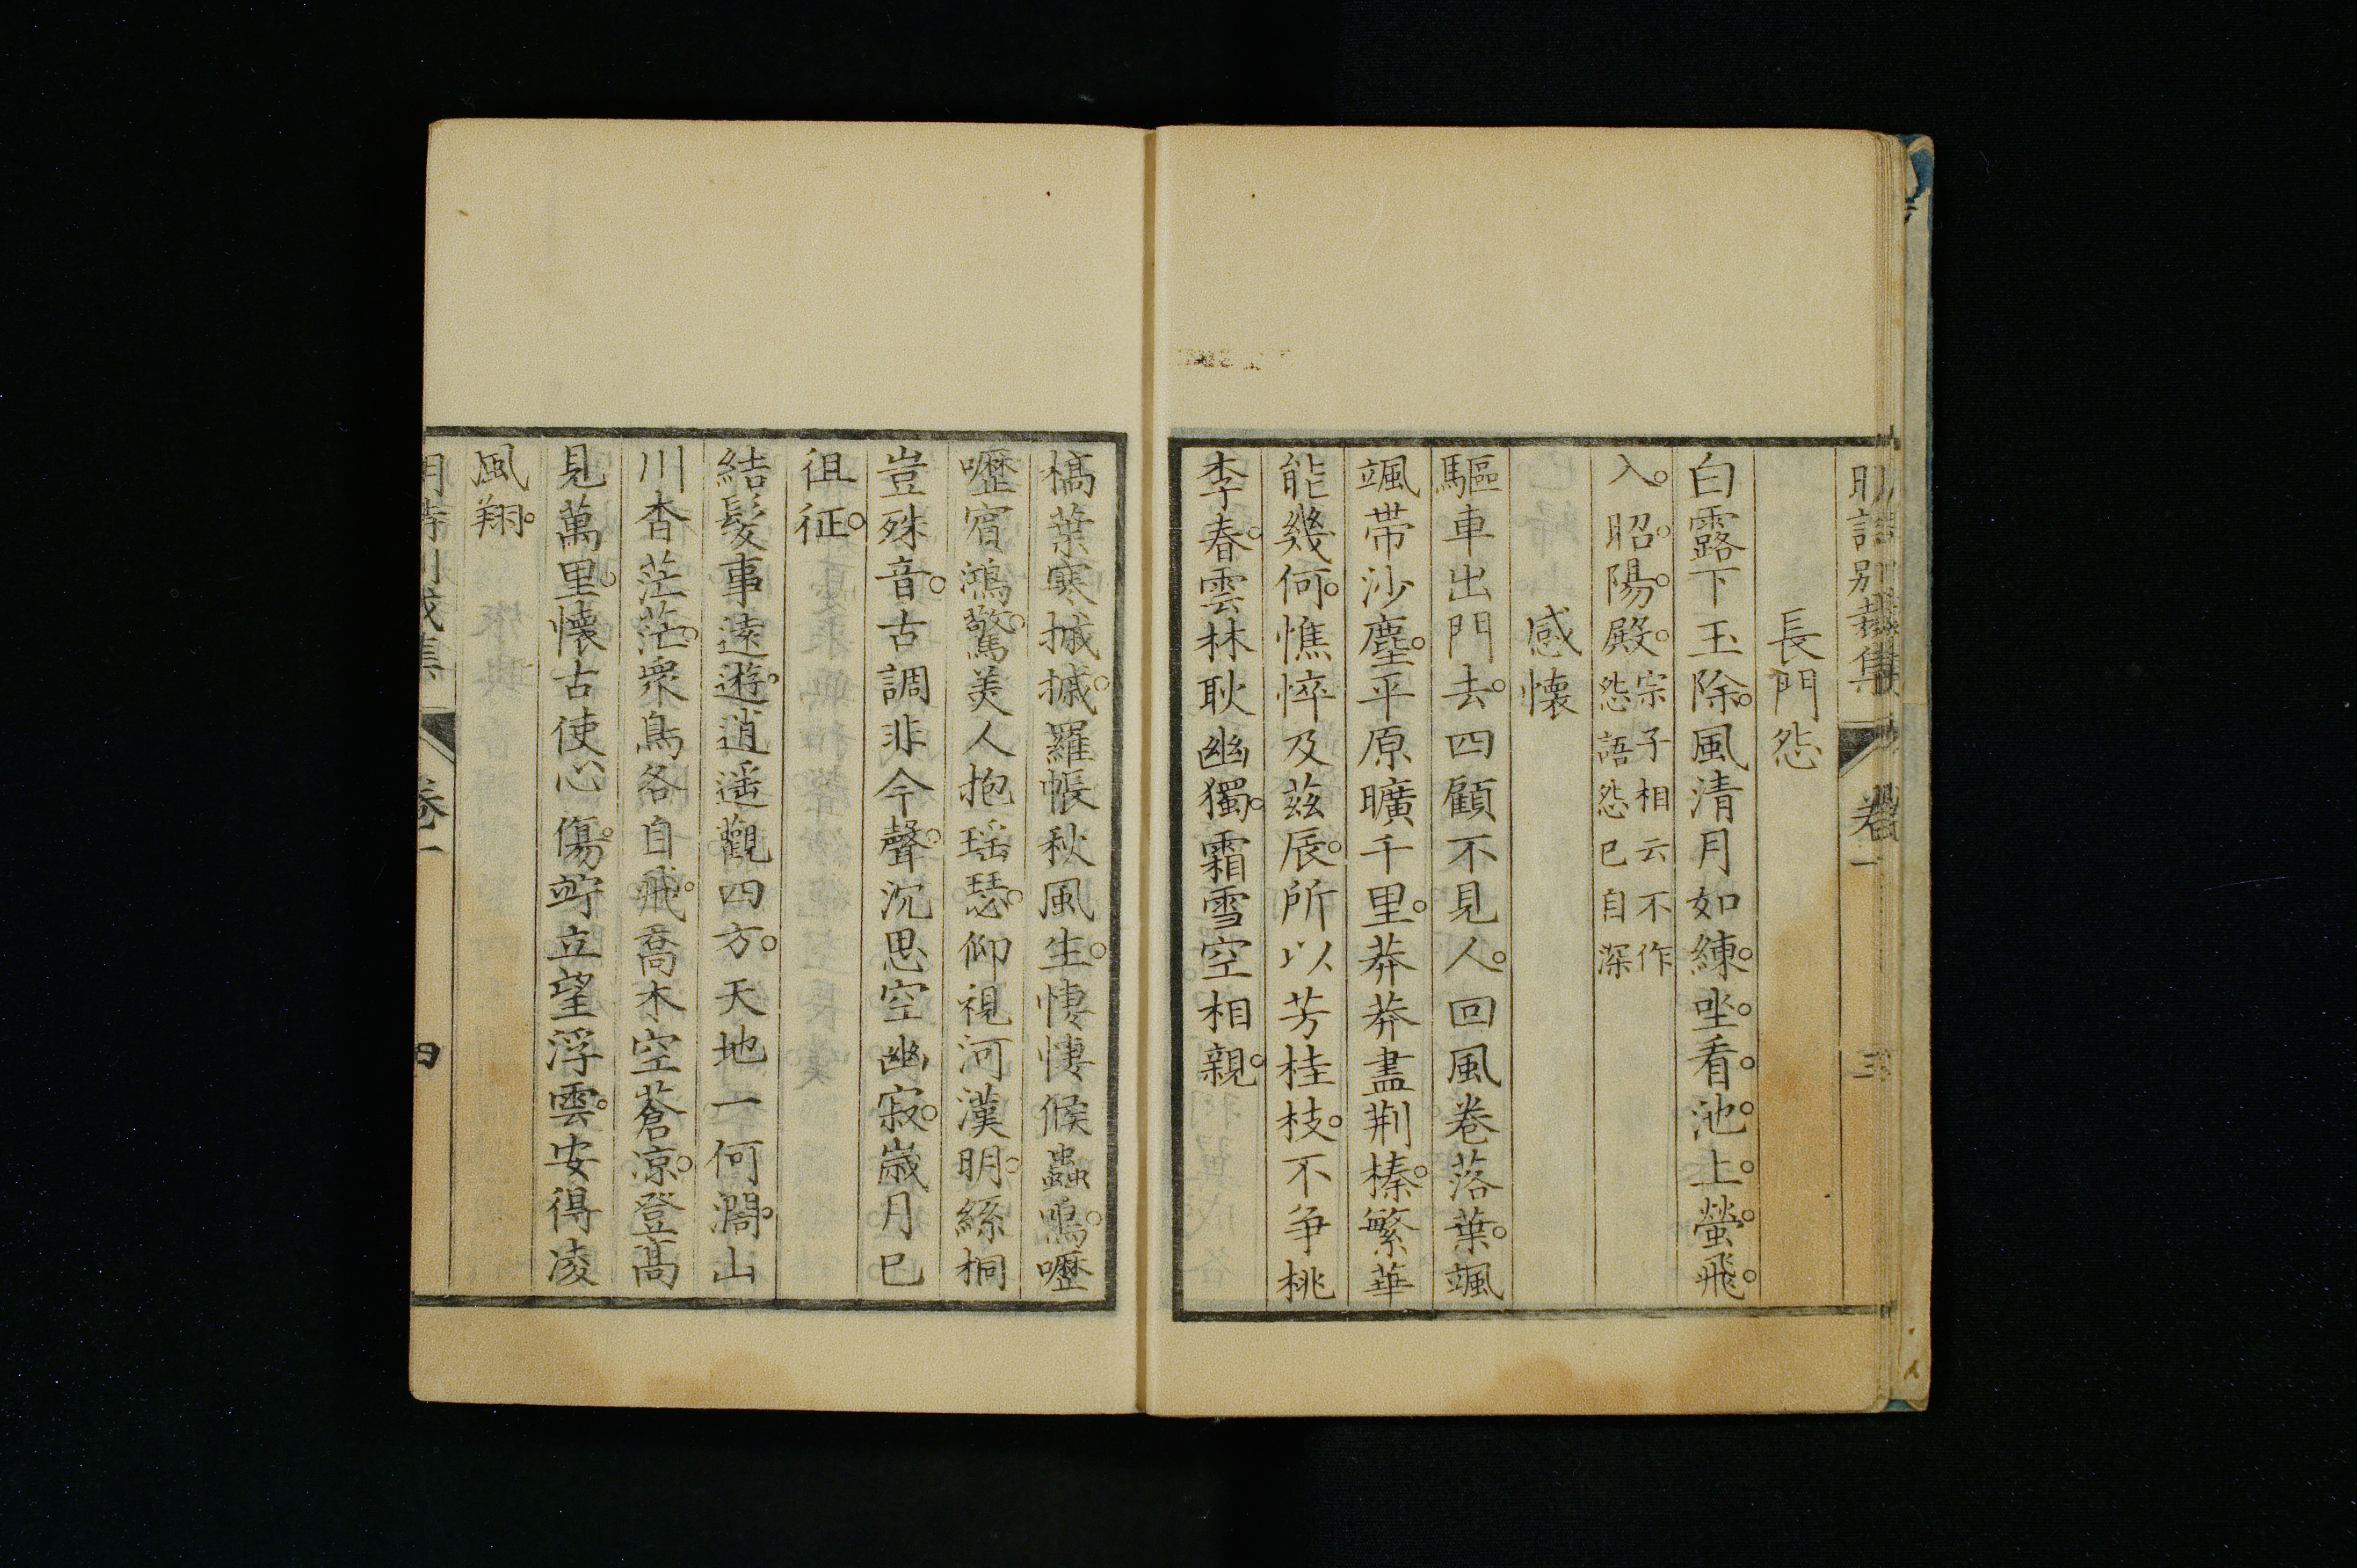 明詩別裁集 卷一 三
長門怨
白露下玉除風清月如練坐看池上螢飛
入昭陽殿宗子相云不作
怨語怨已自深
感懷
驅車出門去四顧不見人回風卷落葉颯
颯帶沙塵平原曠千里莽莽盡荆榛繁華
能幾何憔悴及茲辰所以芳桂枝不争桃
李春雲林耿幽獨霜雪空相親
槁葉寒摵摵羅帳秋風生悽悽候蟲鳴嚦
嚦賔鴻驚美人抱瑶瑟仰視河漢明絲桐
豈殊音古調非今聲沉思空幽寂歲月已
徂征
結髮事遠遊逍遥觀四方天地一何濶山
川杳茫茫衆鳥各自飛喬木空蒼凉登高
見萬里懷古使心傷竚立望浮雲安得凌
風翔
卷一